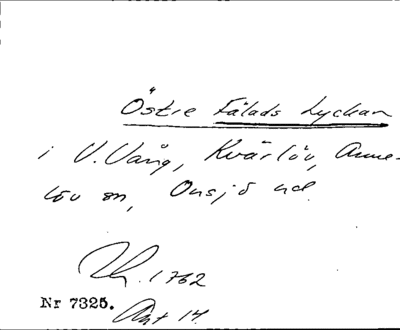 Östre Fälads Lyckan
i V. Vång, Kvärlöv, Anne-
löv sn, Onsjö hd.
Uh. 1762
Nr 7325. Akt 14.